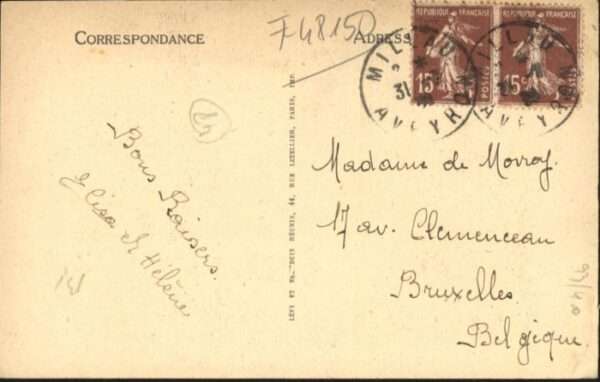 CORRESPONDANCE
F4815D
ADRESSE
RÉPUBLIQUE FRANÇAISE
15c
POSTES
RÉPUBLIQUE FRANÇAISE
15c
MILLAU
31
AVEYRON
MILLAU
AVEYRON
Bons Baisers.
Elisa et Hélène
LÉVY ET NEURDEIN RÉUNIS, 44, RUE LETELLIER, PARIS, IMP.
Madame de
17 av. Clemenceau
Bruxelles.
Belgique.